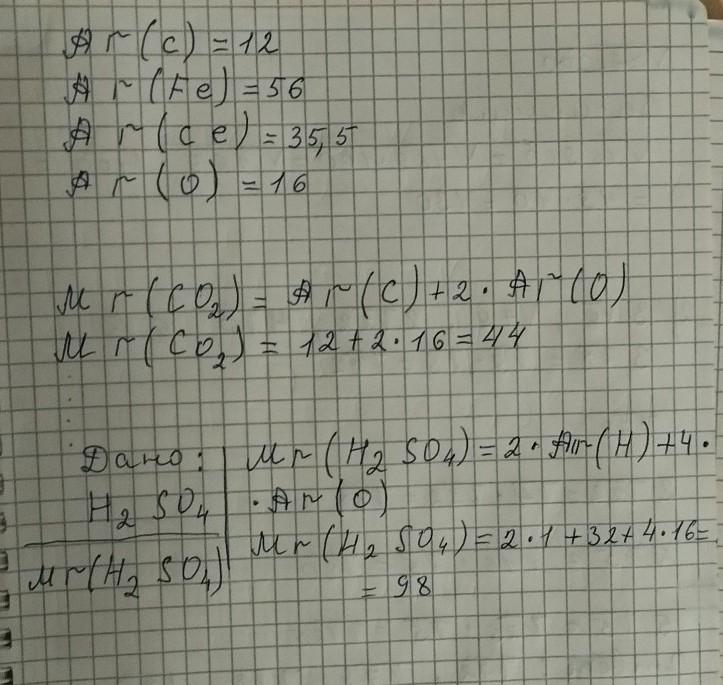 Ar(C) = 12
Ar(Fe) = 56
Ar(Cl) = 35,5
Ar(O) = 16
Mr(CO₂) = Ar(C) + 2 · Ar(O)
Mr(CO₂) = 12 + 2 · 16 = 44
Дано:
H₂SO₄
Mr(H₂SO₄)
Mr(H₂SO₄) = 2 · Ar(H) + 4 ·
· Ar(O)
Mr(H₂SO₄) = 2 · 1 + 32 + 4 · 16 =
= 98